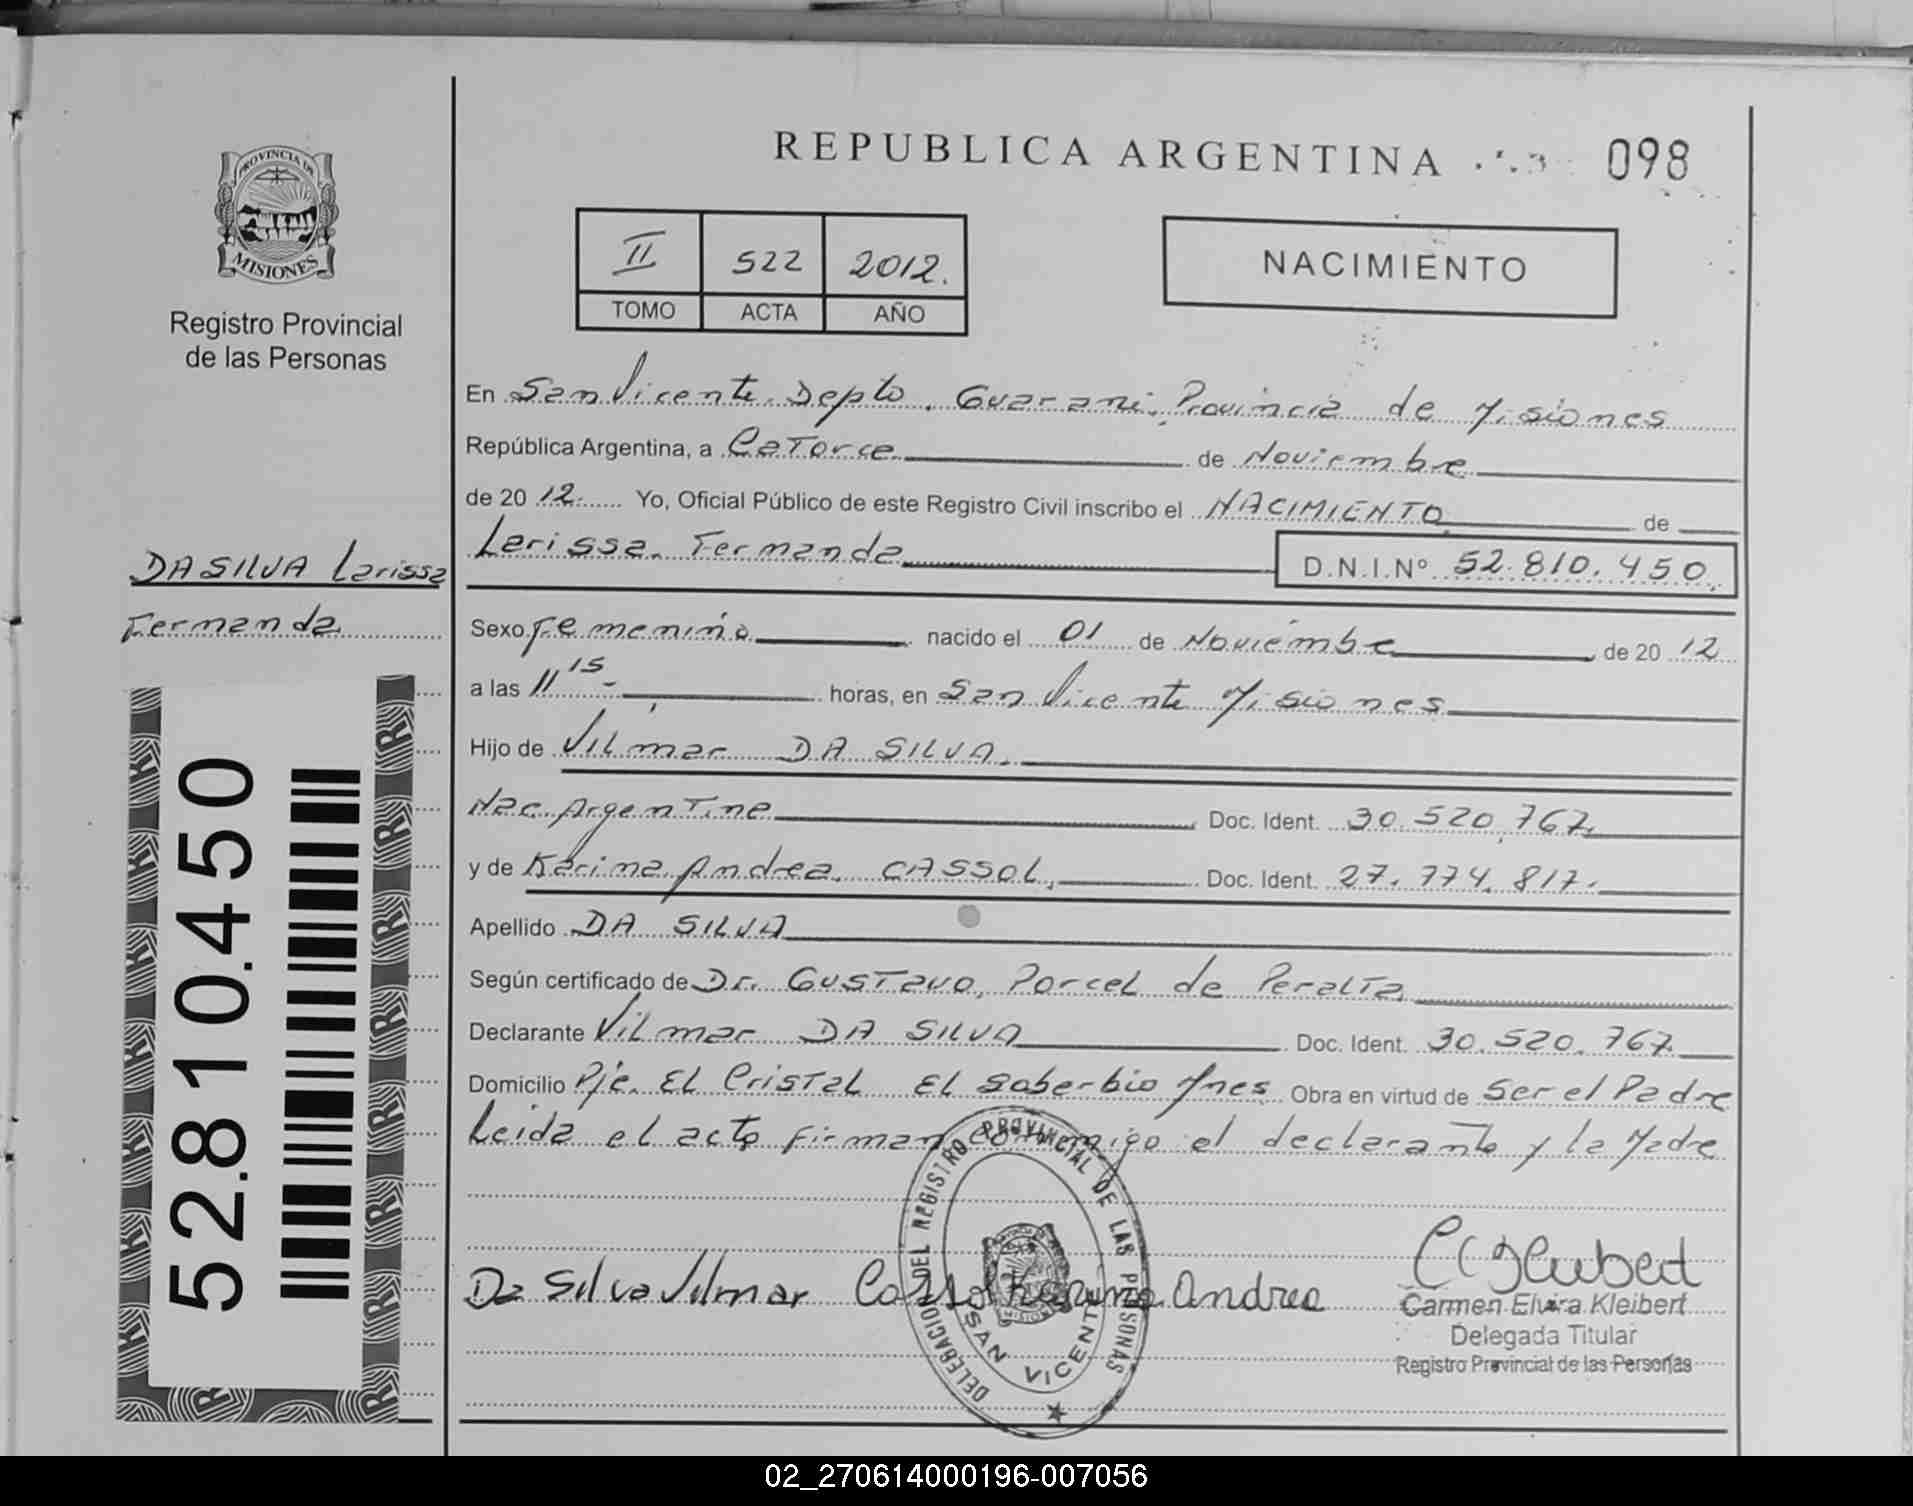 REPUBLICA ARGENTINA
098
PROVINCIA DE
MISIONES
Registro Provincial
de las Personas
II 522 2012.
TOMO ACTA AÑO
NACIMIENTO
En San Vicente Depto. Guarani, Provincia de Misiones
República Argentina, a Catorce de Noviembre
de 20 12. Yo, Oficial Público de este Registro Civil inscribo el NACIMIENTO de
Larissa Fernanda D.N.I.Nº 52.810.450.
DA SILVA Larissa
Fernanda
Sexo Femenino nacido el 01 de Noviembre de 20 12
a las 11 15 horas, en San Vicente Misiones
Hijo de Vilmar DA SILVA.
Nac. Argentina Doc. Ident. 30.520.767.
y de Karina Andrea CASSOL, Doc. Ident. 27.774.817.
Apellido DA SILVA
Según certificado de Dr. Gustavo Porcel de Peralta
Declarante Vilmar DA SILVA Doc. Ident. 30.520.767
Domicilio Pje. El Cristal El Soberbio Mnes Obra en virtud de Ser el Padre
Leida el acta firman conmigo el declarante y la Madre
52.810.450
Da Silva Vilmar Cassol Karina Andrea
DELEGACION DEL REGISTRO PROVINCIAL DE LAS PERSONAS
SAN VICENTE
Carmen Elvira Kleibert
Delegada Titular
Registro Provincial de las Personas
02_270614000196-007056